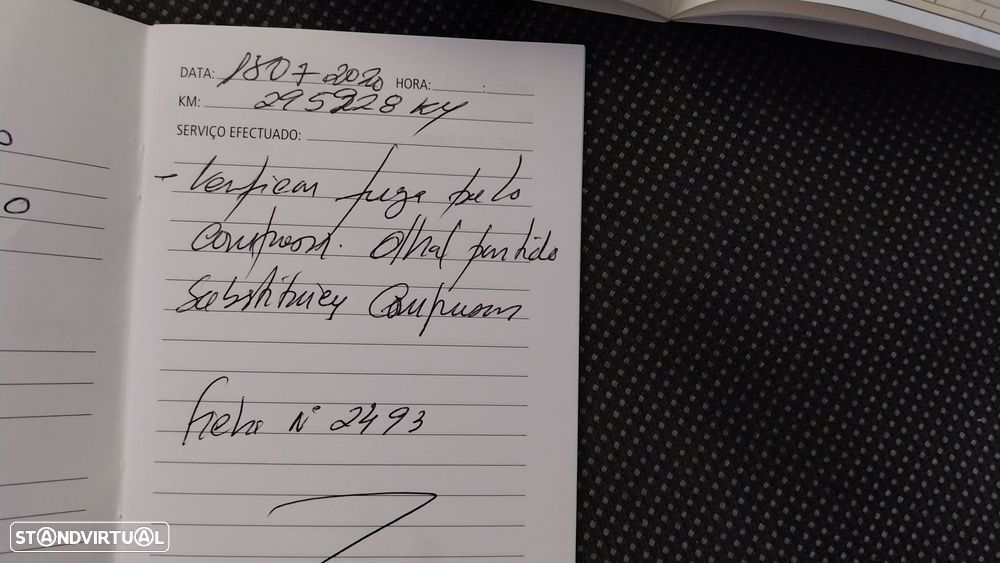 DATA: 18 07 2020 HORA: :
KM: 295228 KM
SERVIÇO EFECTUADO:
- Verificar fuga pelo
Compressor. Olhal partido
Substituiu Compressor
ficha Nº 2493
STANDVIRTUAL